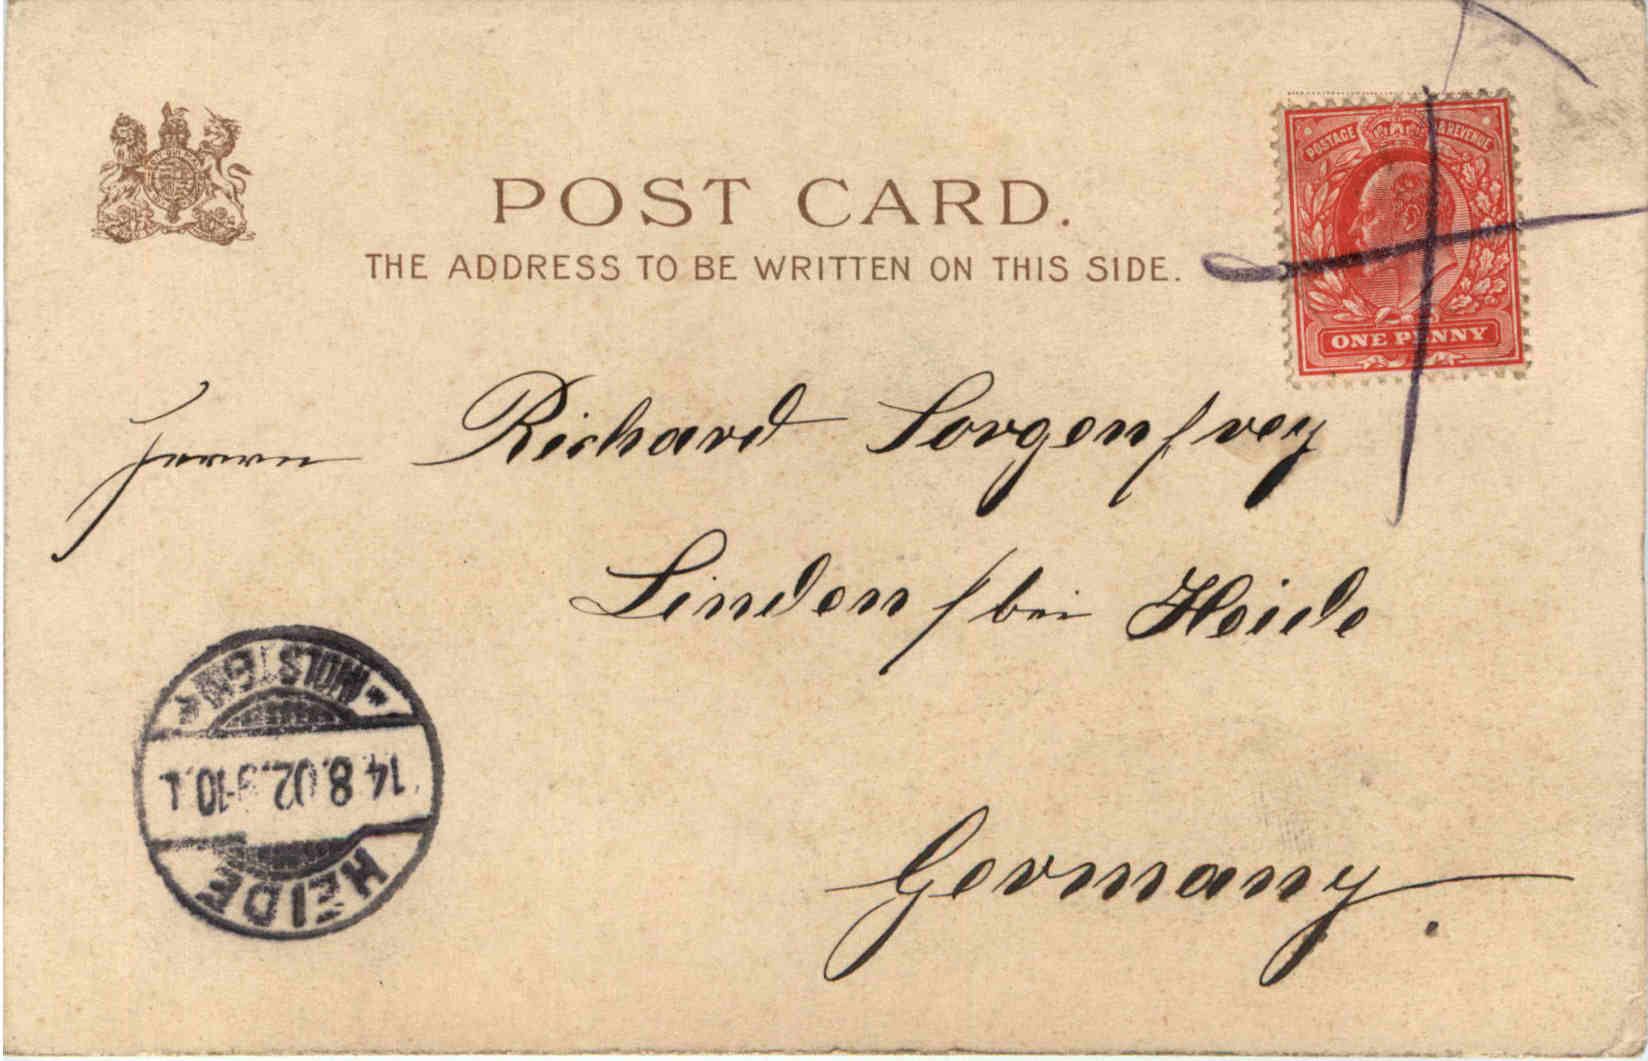 POST CARD.
THE ADDRESS TO BE WRITTEN ON THIS SIDE.
POSTAGE & REVENUE
ONE PENNY
Herrn Richard Sorgenfrey
Linden / bei Heide
Germany.
HEIDE
14.8.02. 9-10
* HOLSTEIN *